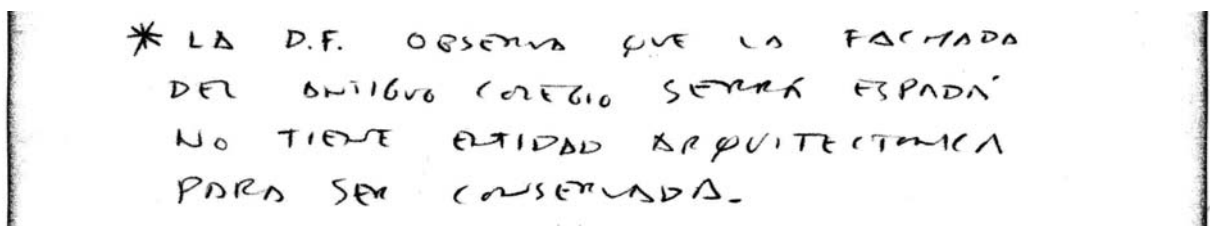 * LA D.F. OBSERVA QUE LA FACHADA
DEL ANTIGUO COLEGIO SERRA ESPADÁ
NO TIENE ENTIDAD ARQUITECTONICA
PARA SER CONSERVADA.